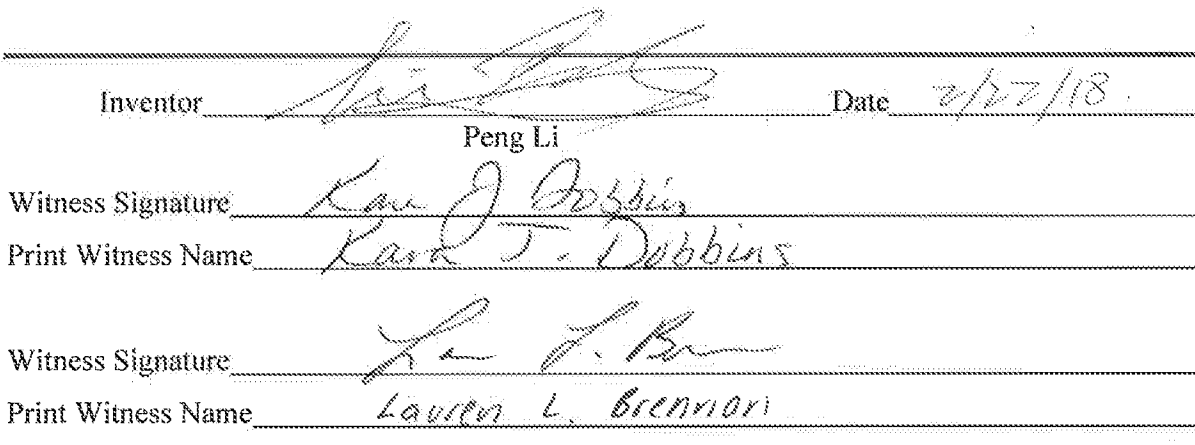 Inventor Date 2/27/18
Peng Li
Witness Signature
Print Witness Name Kara J. Dobbins
Witness Signature
Print Witness Name Lauren L. Brennan